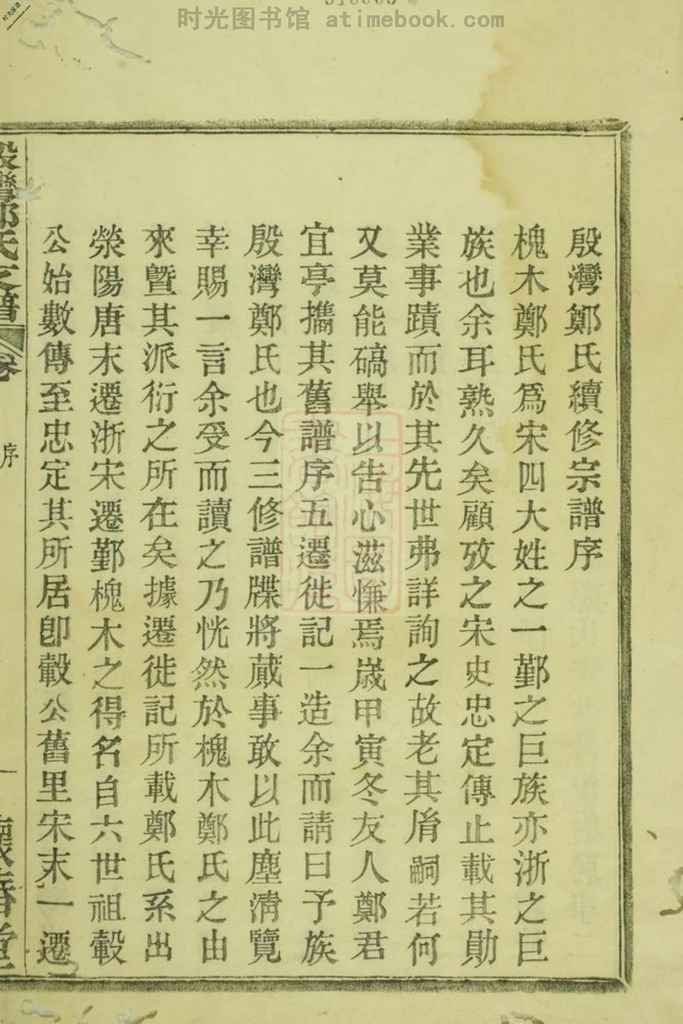 时光图书馆 atimebook.com
殷灣鄭氏續修宗譜序
槐木鄭氏爲宋四大姓之一鄞之巨族亦浙之巨
族也余耳熟久矣顧攷之宋史忠定傳止載其勛
業事蹟而於其先世弗詳詢之故老其胤嗣若何
又莫能碻舉以告心滋慊焉嵗甲寅冬友人鄭君
宜亭攜其舊譜序五遷徙記一造余而請曰予族
殷灣鄭氏也今三修譜牒將蕆事敢以此塵清覽
幸賜一言余受而讀之乃恍然於槐木鄭氏之由
來曁其派衍之所在矣據遷徙記所載鄭氏系出
滎陽唐末遷浙宋遷鄞槐木之得名自六世祖轂
公始數傳至忠定其所居卽轂公舊里宋末一遷
殷灣鄭氏支譜
卷
序
一